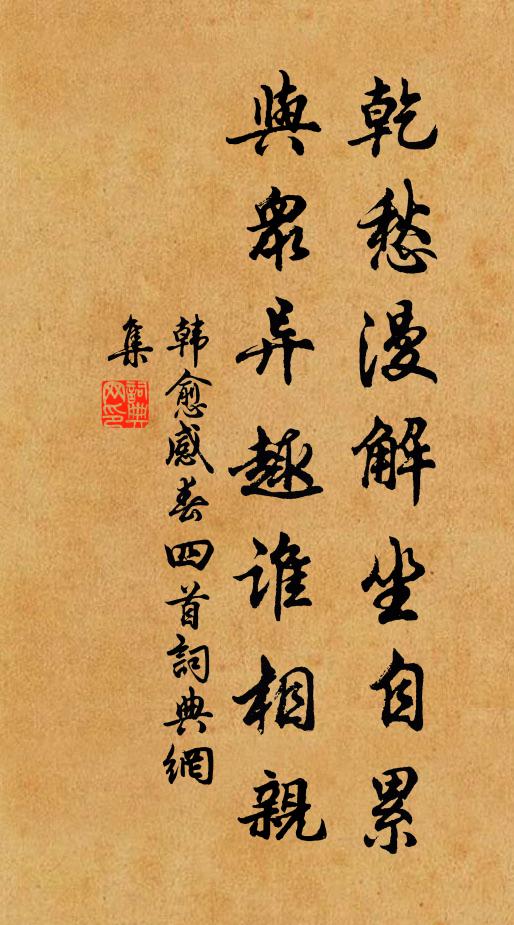 乾愁漫解坐自累
與眾异趣誰相親
韩愈感春四首詞典網
集
詞典
网印